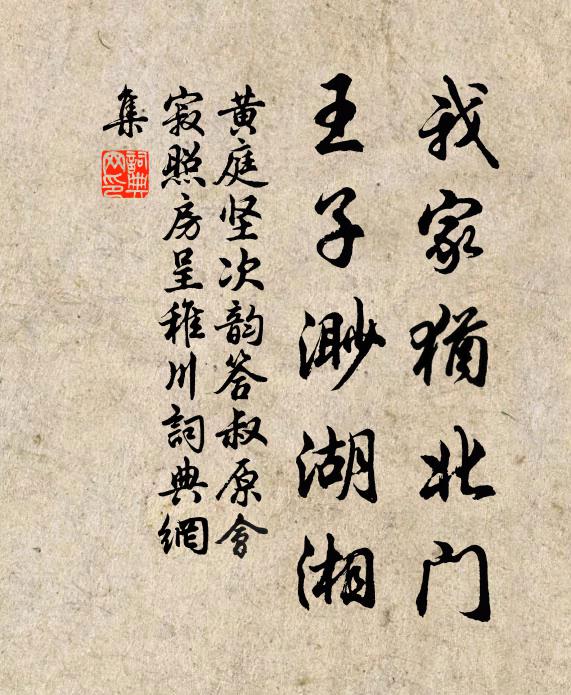 我家猶北门
王子渺湖湘
黄庭坚次韵答叔原會
寂照房呈稚川詞典網
集
詞典網印